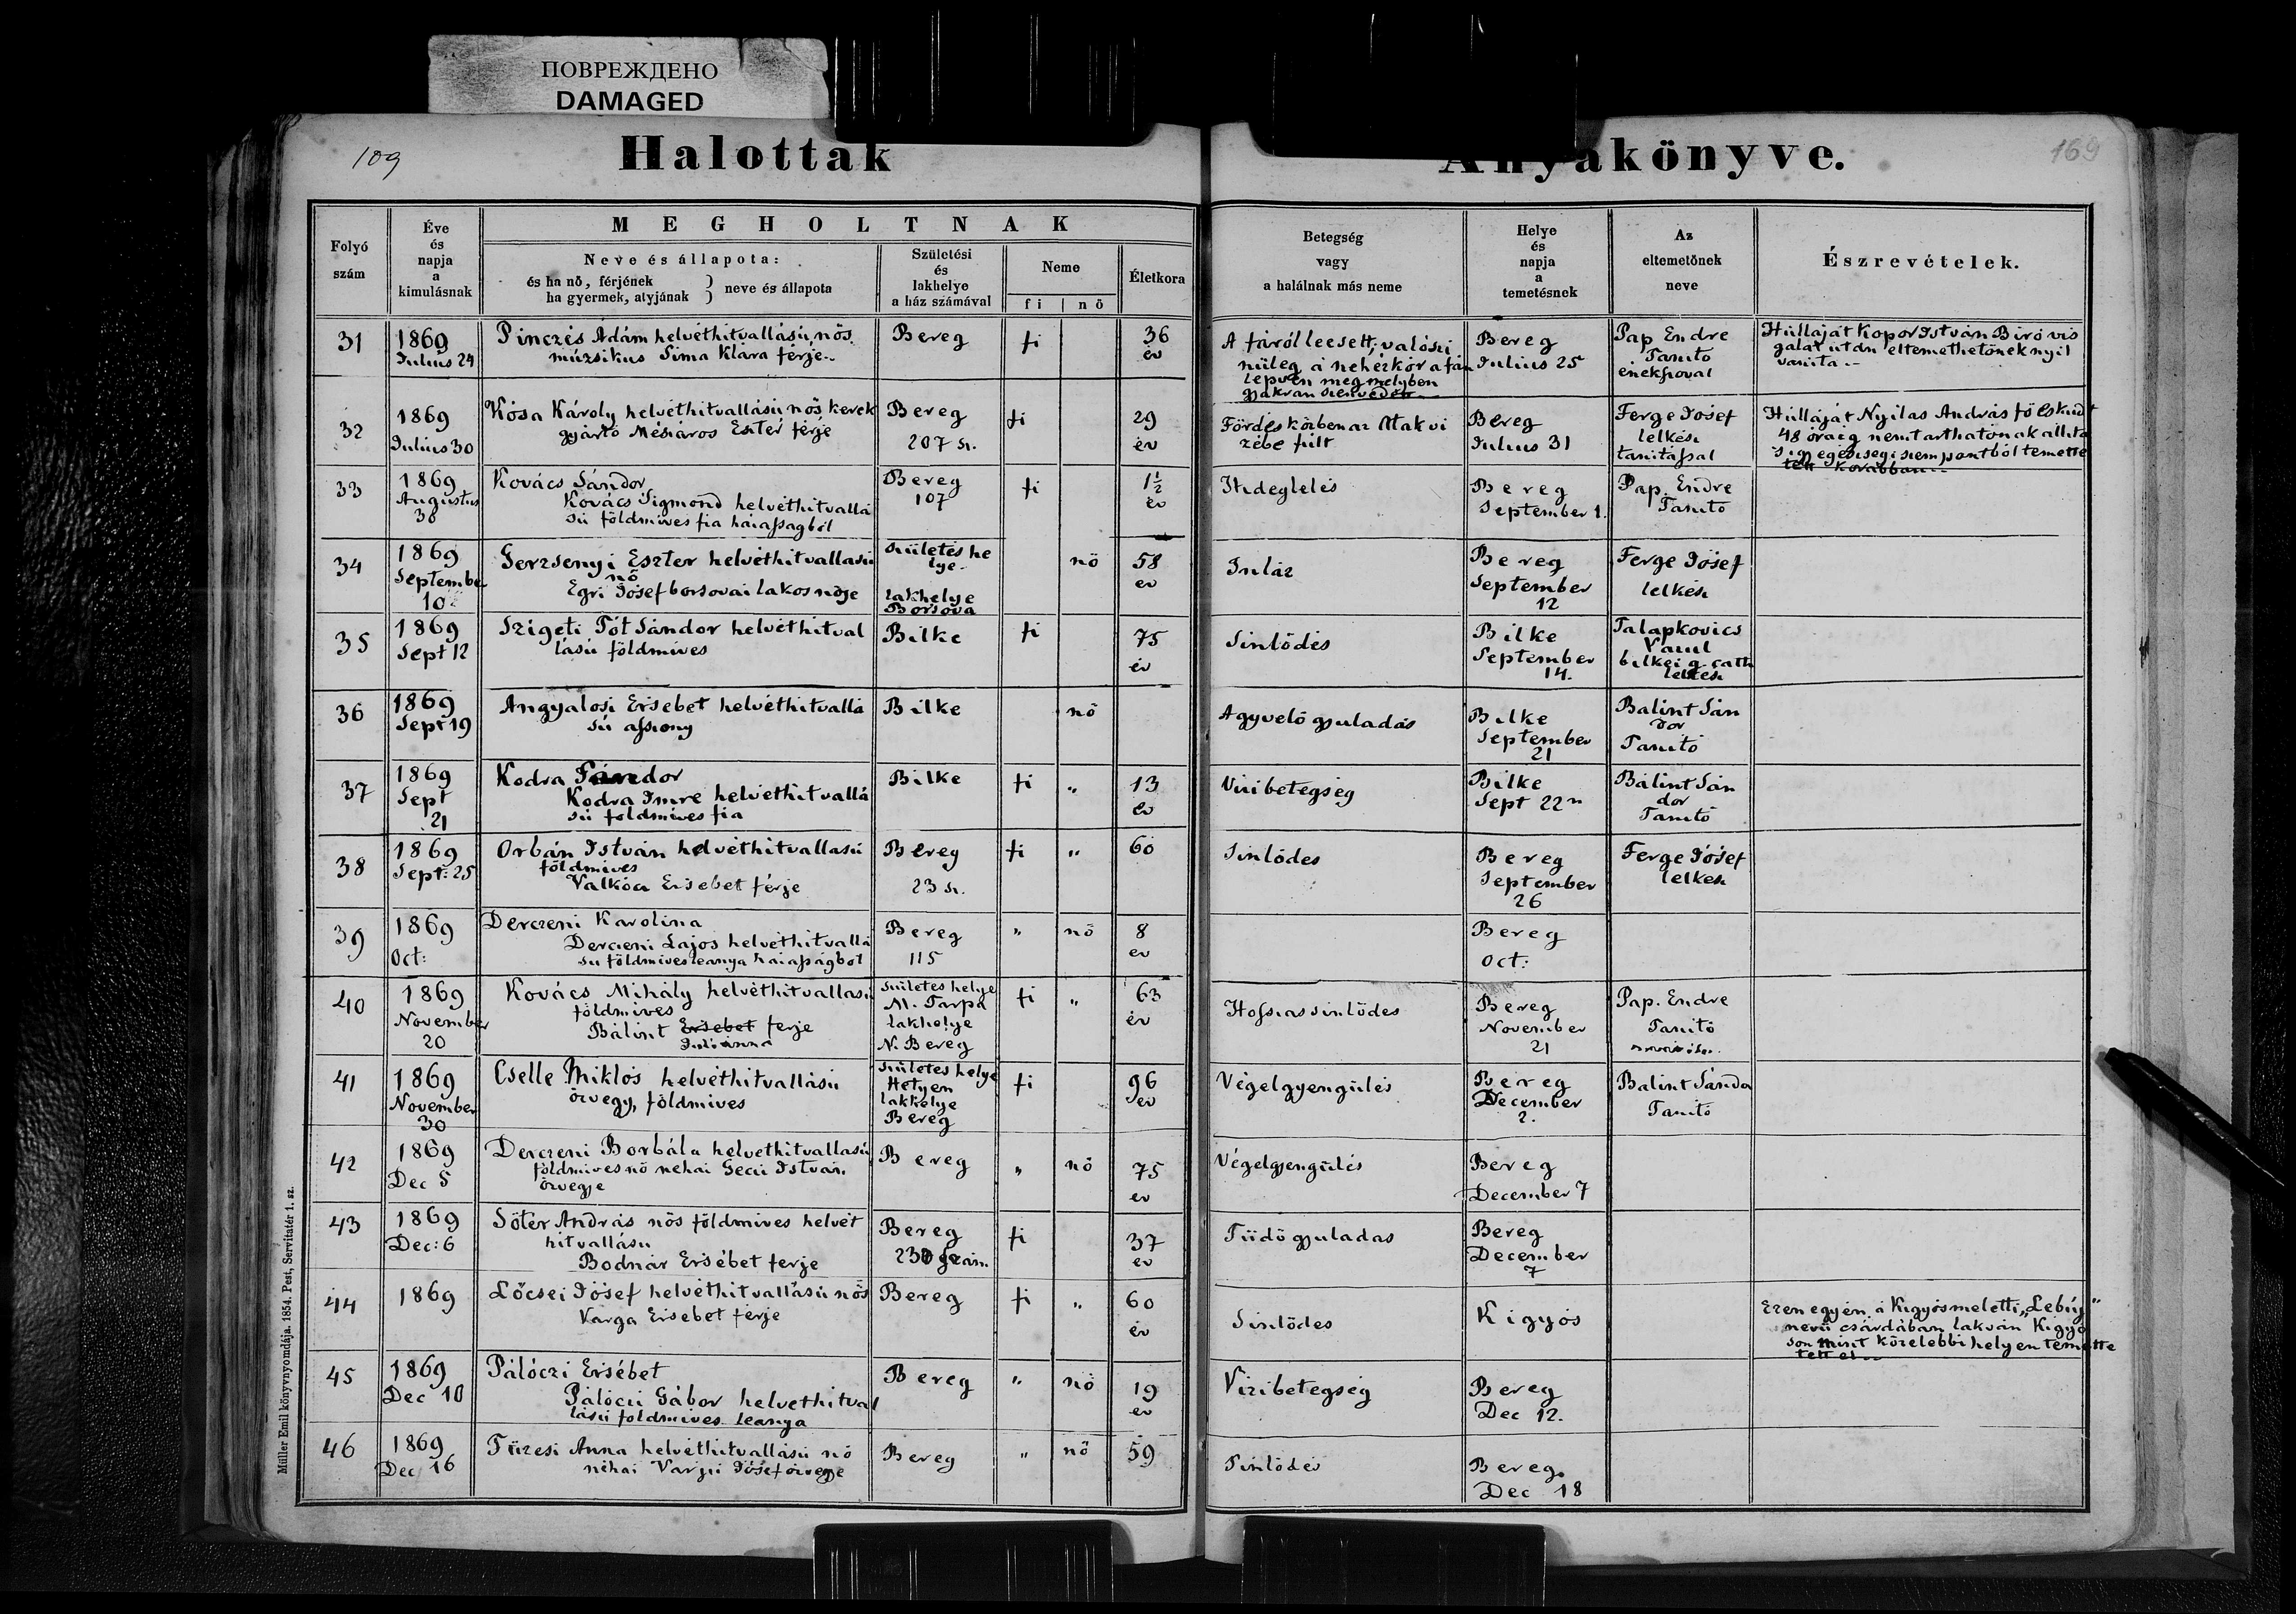 ПОВРЕЖДЕНО
DAMAGED
109
Halottak
Anyakönyve.
169
Folyó
szám
Éve
és
napja
a
kimulásnak
MEGHOLTNAK
Neve és állapota:
és ha nő, férjének
ha gyermek, atyjának
neve és állapota
Születési
és
lakhelye
a ház számával
Neme
fi
nő
Életkora
Betegség
vagy
a halálnak más neme
Helye
és
napja
a
temetésnek
Az
eltemetőnek
neve
Észrevételek.
31
1869
Julius 24
Pinczés Ádám helvéthitvallásu, nős
múzsikus Sima Klára férje..
Bereg
fi
36
év
A fáról leesett; valószi
nüleg a nehézkór a fán
lepvén meg melyben
gyakran szenvedett
Bereg
Julius 25
Pap Endre
Tanitó
énekszoval
Hulláját Kopor István Biró vis
gálat után eltemethetőnek nyil
vánita ..
32
1869
Julius 30
Kósa Károly helvéthitvallásu nős, kerek
gyártó Mészáros Eszter férje
Bereg
207 sz.
fi
29
év
Fördés közben az Atak vi
zébe fúlt
Bereg
Julius 31
Ferge Jósef
lelkész
tanitassal
Hulláját Nyilas András fő esküdt
48 óráig nem tarthatónak állitá
s igy egésségi szempontból temette
tett korábban ..
33
1869
Augustus
30
Kovács Sándor
Kovács Sigmond helvéthitvallá
su földmives fia házasságból
Bereg
107
fi
1½
év
Hideglelés
Bereg
September 1.
Pap. Endre
Tanitó
34
1869
September
10
Gerzsenyi Eszter helvéthitvallasu
nő
Egri Jósef borsovai lakos nője
születés he
lye.
lakhelye
Borsova
nő
58
ev
Inláz
Bereg
September
12
Ferge Jósef
lelkész
35
1869
Sept 12
Szigeti Tót Sándor helvéthitval
lásu földmives
Bilke
fi
75
év
Sinlődés
Bilke
September
14.
Talapkovics
bilkei g. cath
lelkész
36
1869
Sept 19
Angyalosi Ersebet helvéthitvallá
su asszony
Bilke
nő
Agyvelő gyuladás
Bilke
September
21
Balint Sán
dor
Tanitó
37
1869
Sept
21
Kodra Sándor
Kodra Imre helvéthitvallá
su földmives fia
Bilke
fi
"
13
ev
Vizibetegség
Bilke
Sept 22n
Bálint Sán
dor
Tanitó
38
1869
Sept: 25
Orbán István helvéthitvallasu
földmives
Valkóci Ersebet férje
Bereg
23 sz.
fi
"
60
Sinlődes
Bereg
September
26
Ferge Jósef
lelkesz
39
1869
Oct:
Derczeni Karolina
Derczeni Lajos helvéthitvallá
su földmives leanya házasságbol
Bereg
115
"
nő
8
ev
Bereg
Oct:
40
1869
November
20
Kovács Mihály helvéthitvallasu
földmives
Bálint Ersebet férje
Juliánna
születes helye
M. Tarpa
lakhelye
N. Bereg
fi
"
63
év
Hosszas sinlődes
Bereg
November
21
Pap. Endre
Tanitó
41
1869
November
30
Cselle Miklós helvéthitvallásu
özvegy, földmives
születes helye
Hetyen
lakhelye
Bereg
fi
96
ev
Végelgyengülés
Bereg
December
2.
Balint Sándor
Tanitó
42
1869
Dec 5
Derczeni Borbála helvethitvallasu
földmives nő nehai Geczi István.
özvegye
Bereg
"
nő
75
ev
Végelgyengülés
Bereg
December 7
43
1869
Dec: 6
Sőtér András nős földmives helvét
hitvallásu
Bodnár Ersébet ferje
Bereg
230 szám.
fi
37
ev
Tüdő gyuladas
Bereg
December
7
44
1869
Lőcsei Jósef helvéthitvallásu nős
Varga Ersebet férje
Bereg
fi
"
60
év
Sinlődes
Kigyós
Ezen egyén a Kigyós meletti „Lebúj"
nevü csárdában lakván Kigyó
son mint közelebbi helyen temette
tett el ..
45
1869
Dec 10
Pálóczi Ersébet
Pálóczi Gábor helvethitval
lásu földmives leanya
Bereg
"
nő
19
ev
Vizibetegség
Bereg
Dec 12.
46
1869
Dec 16
Füzesi Anna helvéthitvallásu nő
néhai Varju Jósef özvegye
Bereg
"
nő
59
Sinlődés
Bereg.
Dec 18
Müller Emil könyvnyomdája. 1854. Pest, Servitatér 1. sz.